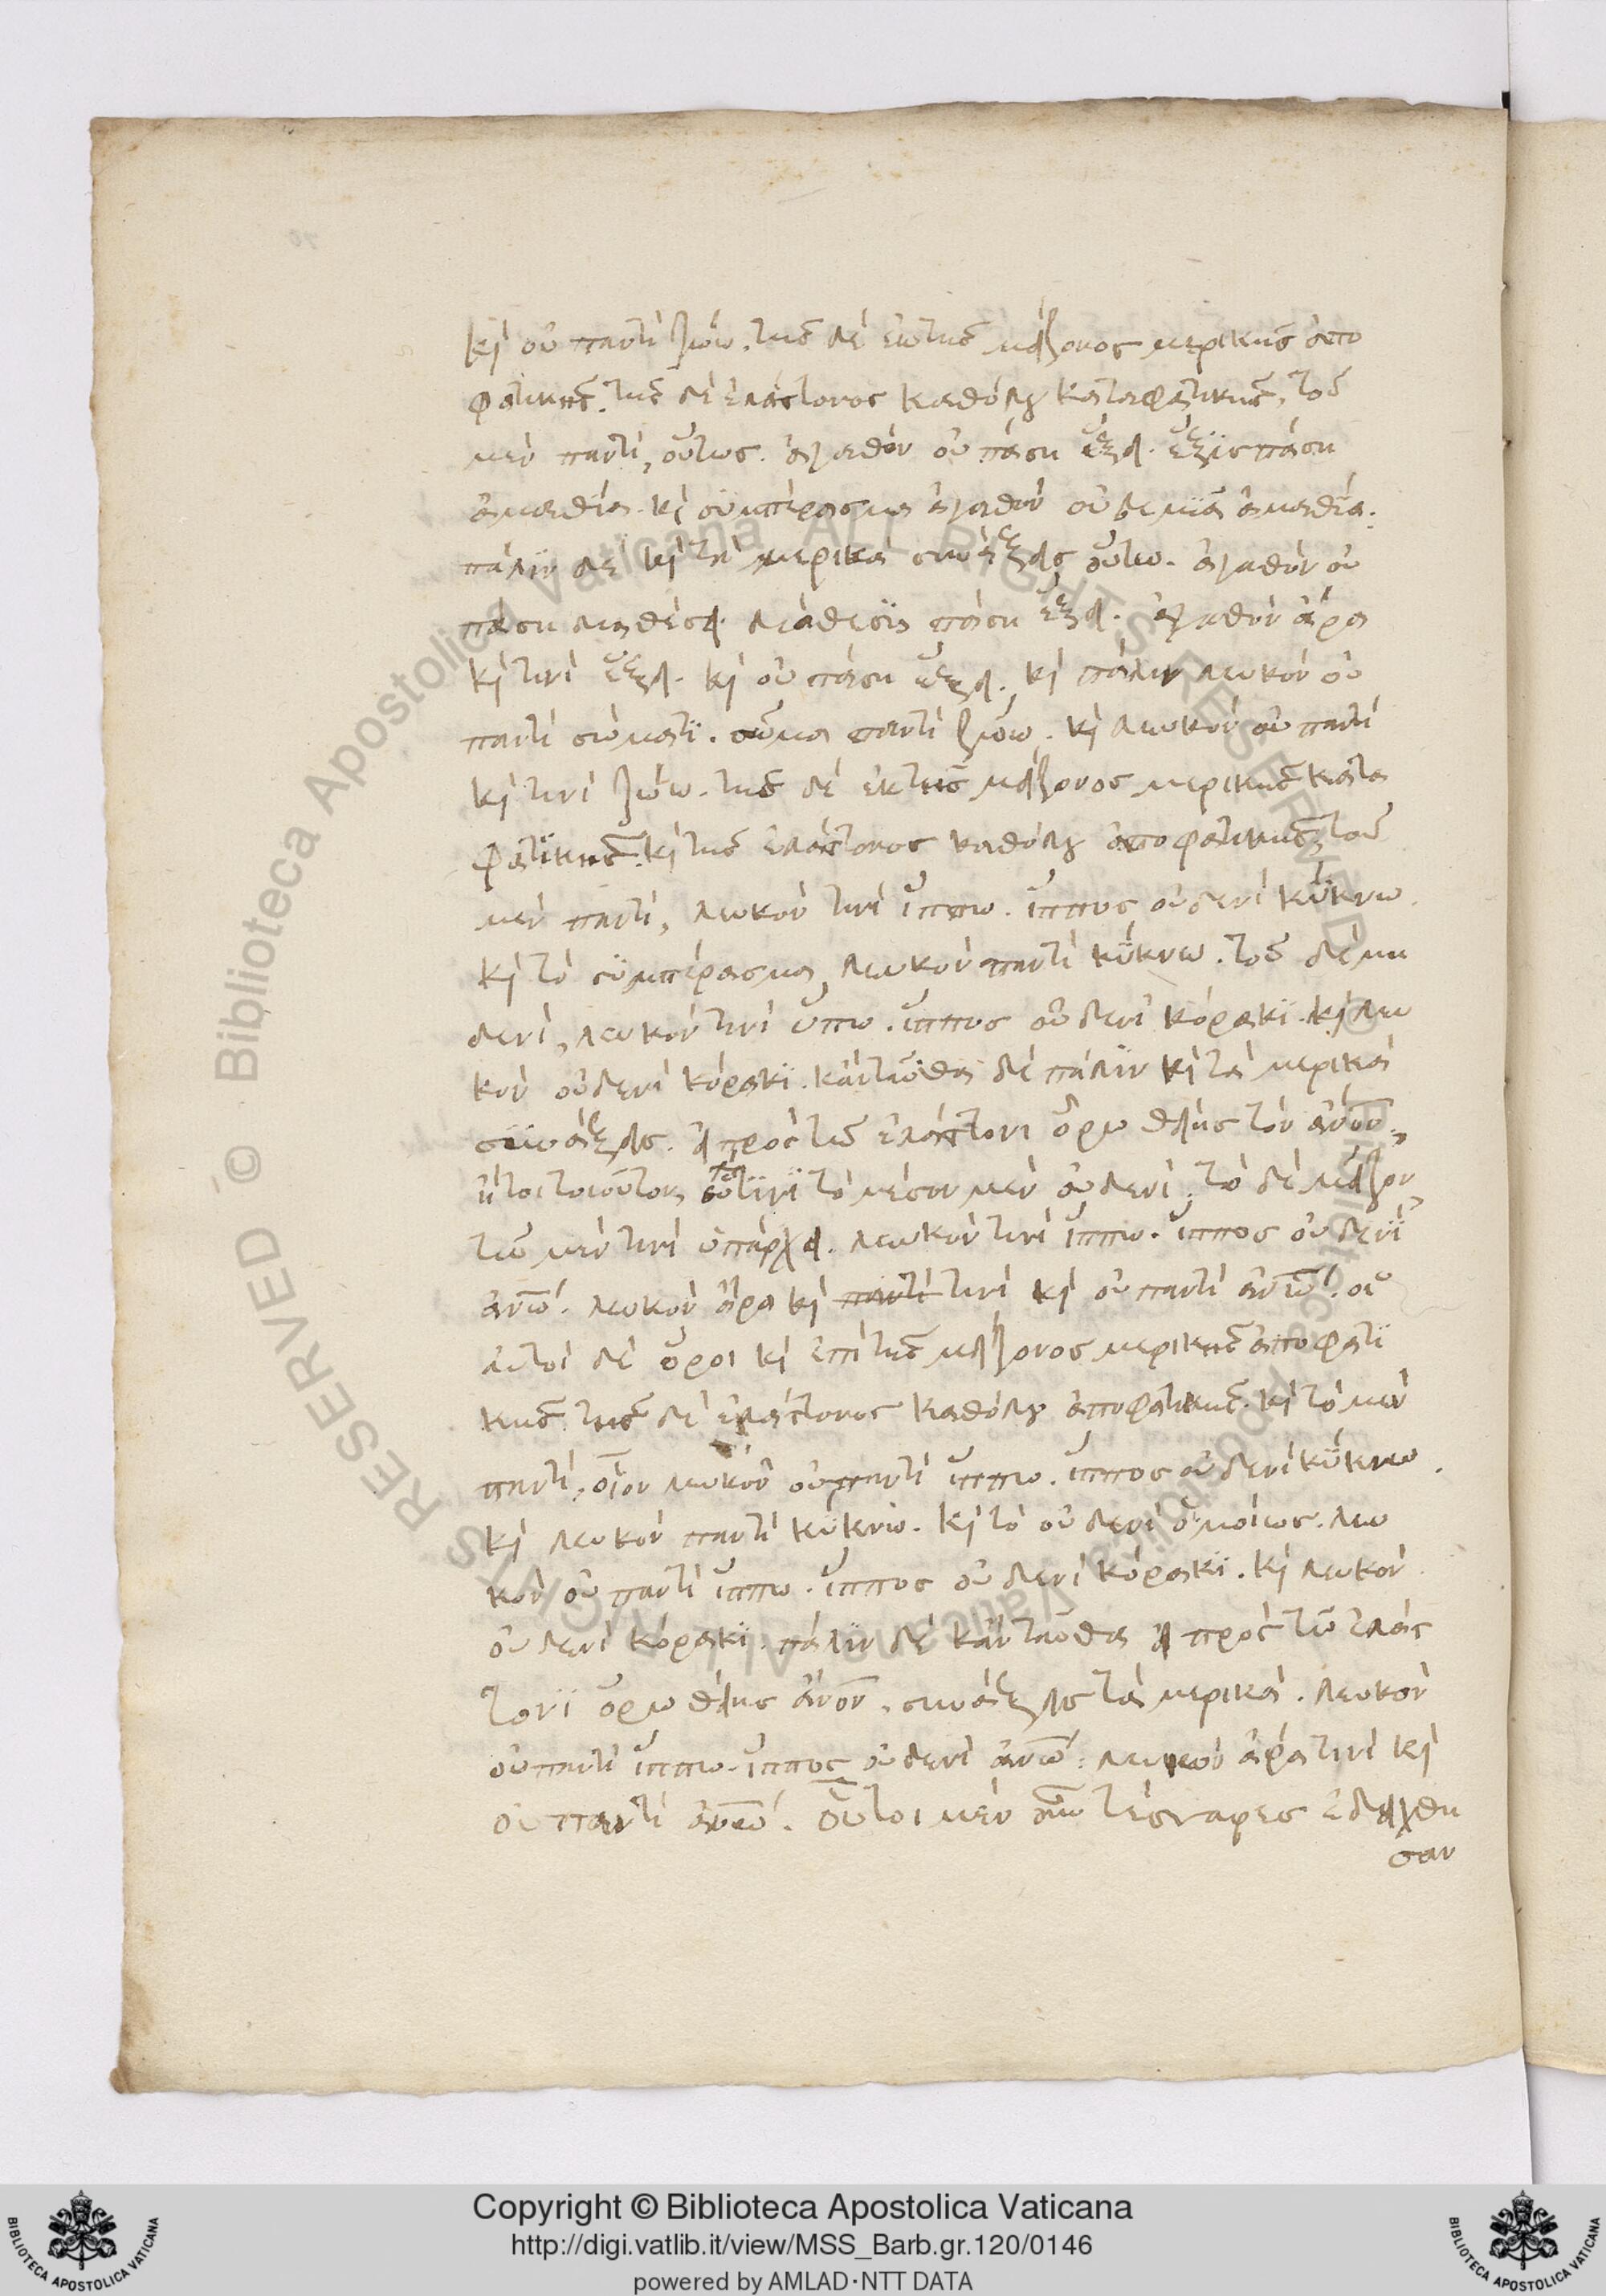 κὶ οὐ παντὶ ζώω. τῆς δὲ ἐκ τῆς μείζονος μερικῆς ἀπο
φατικῆς. τῆς δὲ ἐλάττονος καθόλου καταφατικῆς, τοῦ
μὲν παντὶ, οὕτως. ἀγαθὸν οὐ πάση ἕξει. ἕξις πάση
ἀμαθία. κὶ συμπέρασμα ἀγαθὸν οὐδεμιᾶ ἀμαθία.
πάλιν δὲ κὶ τὰ μερικὰ συνάξεις οὕτω. ἀγαθὸν οὐ
πάση διαθέσει. διάθεσις πάση ἕξει. ἀγαθὸν ἄρα
κὶ τινὶ ἕξει. κὶ οὐ πάση ἕξει. κὶ πάλιν λευκὸν οὐ
παντὶ σώματι. σῶμα παντὶ ζώω. κὶ λευκὸν οὐ παντὶ
κὶ τινὶ ζώω. τῆς δὲ ἐκ τῆς μείζονος μερικῆς κατα
φατικῆς. κὶ τῆς ἐλάττονος καθόλου ἀποφατικῆς, τοῦ
μὲν παντὶ, λευκὸν τινὶ ἵππω. ἵππος οὐδενὶ κύκνω.
κὶ τὸ συμπέρασμα, λευκὸν παντὶ κύκνω. τοῦ δὲ μη
δενὶ, λευκὸν τινὶ ἵππω. ἵππος οὐδενὶ κόρακι. κὶ λευ
κὸν οὐδενὶ κόρακι. κἀνταῦθα δὲ πάλιν κὶ τὰ μερικὰ
συνάξεις. εἰ πρὸς τῶ ἐλάττονι ὅρω θείης τὸν ἄνον,
ἤτοι τοιοῦτον τὸ μέσον μὲν οὐδενὶ, τὸ δὲ μεῖζον
τῶ μὲν τινὶ ὑπάρχει. λευκὸν τινὶ ἵππω. ἵππος οὐδενὶ
ἀνω. λευκὸν ἄρα κὶ παντὶ τινὶ κὶ οὐ παντὶ ἀνω. οἱ
αὐτοὶ δὲ ὅροι κὶ ἐπὶ τῆς μείζονος μερικῆς ἀποφατι
κῆς τῆς δὲ ἐλάττονος καθόλου ἀποφατικῆς. κὶ τὸ μὲν
παντὶ, οἷον λευκὸν οὐ παντὶ ἵππω. ἵππος οὐδενὶ κύκνω.
κὶ λευκὸν παντὶ κύκνω. κὶ τὸ οὐδενὶ ὁμοίως. λευ
κὸν οὐ παντὶ ἵππω. ἵππος οὐδενὶ κόρακι. κὶ λευκὸν
οὐδενὶ κόρακι. πάλιν δὲ κἀνταῦθα εἰ πρὸς τῶ ἐλάτ
τονι ὅρω θείης ἄνον, συνάξεις τὰ μερικά. λευκὸν
οὐ παντὶ ἵππω. ἵππος οὐδενὶ ἀνω. λευκὸν ἄρα τινὶ κὶ
οὐ παντὶ ἀνω. οὗτοι μὲν οὖν τέσσαρες ἐδείχθη
σαν
Copyright © Biblioteca Apostolica Vaticana
http://digi.vatlib.it/view/MSS_Barb.gr.120/0146
powered by AMLAD·NTT DATA